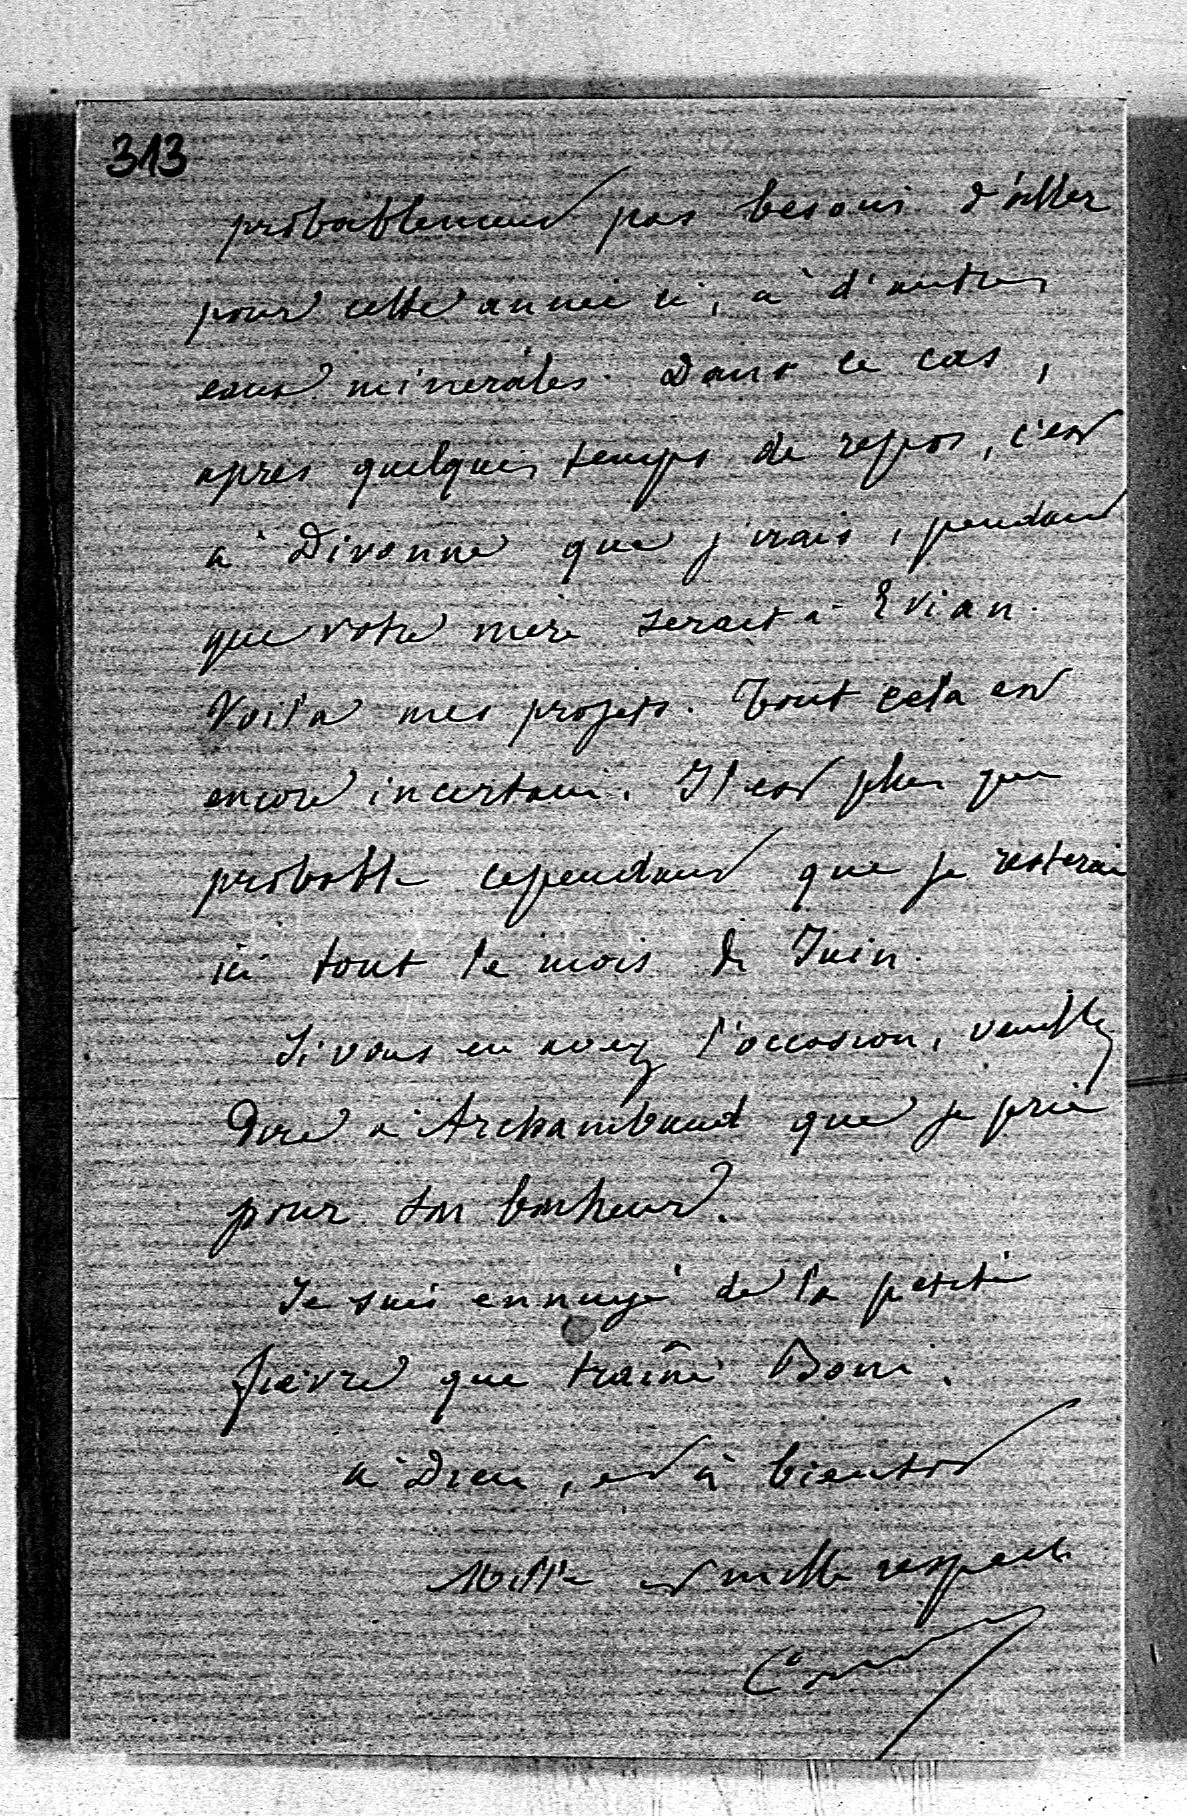 313
probablement pas besoin d'aller
pour cette année ci, à d'autres
eaux minérales. Dans ce cas,
après quelques temps de repos, c'est
à Divonne que j'irais, pendant
que votre mère serait à Evian.
Voilà mes projets. Tout cela est
encore incertain. Il est plus que
probable cependant que je resterai
ici tout le mois de Juin.
Si vous en avez l'occasion, veuillez
dire à Archambaud que je prie
pour son bonheur.
Je suis ennuyé de la petite
fièvre que traîne Boni.
à Dieu, et à bientôt
Mille et mille respects